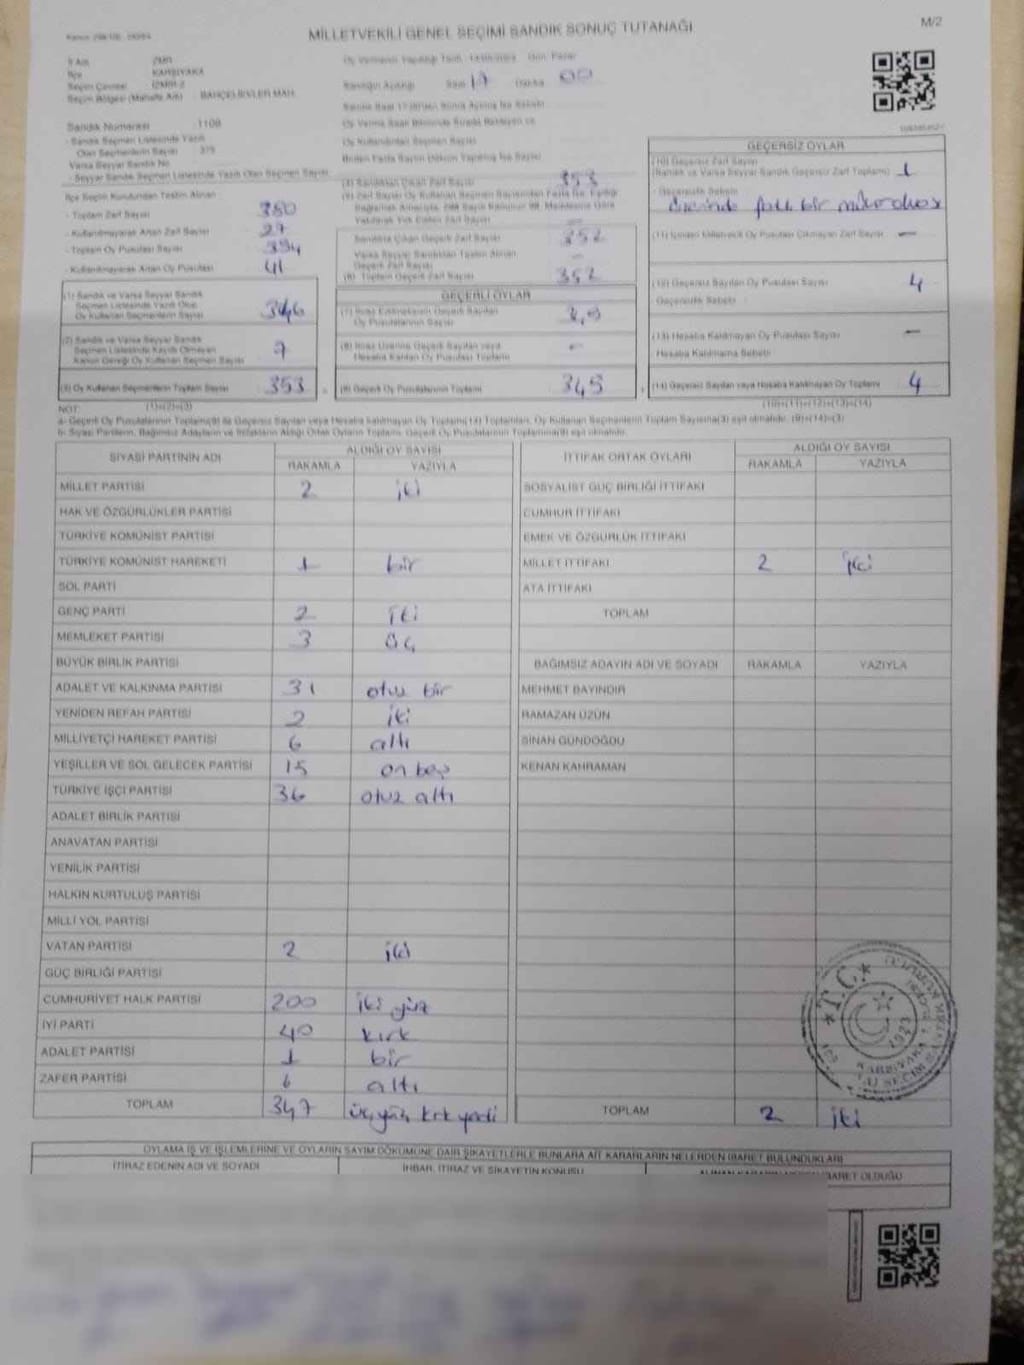 MİLLETVEKİLİ GENEL SEÇİMİ SANDIK SONUÇ TUTANAĞI
M/2
İlçe KARŞIYAKA
Seçim Çevresi İZMİR-2
Seçim Bölgesi (Mahalle Adı) BAHÇELİEVLER MAH.
Sandığın Açıldığı Saat 17 Dakika 00
Sandık Numarası 1109
- Sandık Seçmen Listesinde Yazılı
Olan Seçmenlerin Sayısı 375
Varsa Seyyar Sandık No
- Seyyar Sandık Seçmen Listesinde Yazılı Olan Seçmen Sayısı
İlçe Seçim Kurulundan Teslim Alınan
- Toplam Zarf Sayısı 380
- Kullanılmayarak Artan Zarf Sayısı 27
- Toplam Oy Pusulası Sayısı 394
- Kullanılmayarak Artan Oy Pusulası 41
(1) Sandık ve Varsa Seyyar Sandık
Seçmen Listesinde Yazılı Olup
Oy Kullanan Seçmenlerin Sayısı 346
(2) Sandık ve Varsa Seyyar Sandık
Seçmen Listesinde Kayıtlı Olmayan
Kanun Gereği Oy Kullanan Seçmen Sayısı 7
(3) Oy Kullanan Seçmenlerin Toplam Sayısı 353
(4) Sandıktan Çıkan Zarf Sayısı 353
Sandıkta Çıkan Geçerli Zarf Sayısı 352
Varsa Seyyar Sandıktan Teslim Alınan
Geçerli Zarf Sayısı -
(6) Toplam Geçerli Zarf Sayısı 352
GEÇERLİ OYLAR
(7) İtiraz Edilmeksizin Geçerli Sayılan
Oy Pusulalarının Sayısı
(8) İtiraz Üzerine Geçerli Sayılan veya
Hesaba Katılan Oy Pusulası Toplamı -
(9) Geçerli Oy Pusulalarının Toplamı 349
GEÇERSİZ OYLAR
(10) Geçersiz Zarf Sayısı
(Sandık ve Varsa Seyyar Sandık Geçersiz Zarf Toplamı) 1
- Geçersizlik Sebebi
(11) İçinden Milletvekili Oy Pusulası Çıkmayan Zarf Sayısı -
(12) Geçersiz Sayılan Oy Pusulası Sayısı 4
Geçersizlik Sebebi
(13) Hesaba Katılmayan Oy Pusulası Sayısı -
Hesaba Katılmama Sebebi
(14) Geçersiz Sayılan veya Hesaba Katılmayan Oy Toplamı 4
NOT: (1)+(2)=(3) (10)+(11)+(12)+(13)=(14)
a- Geçerli Oy Pusulaları Toplamı(9) ile Geçersiz Sayılan veya Hesaba katılmayan Oy Toplamı(14) Toplamları, Oy Kullanan Seçmenlerin Toplam Sayısına(3) eşit olmalıdır. (9)+(14)=(3)
b- Siyasi Partilerin, Bağımsız Adayların ve İttifakların Aldığı Ortak Oyların Toplamı, Geçerli Oy Pusulalarının Toplamına(9) eşit olmalıdır.
SİYASİ PARTİNİN ADI ALDIĞI OY SAYISI
RAKAMLA YAZIYLA
MİLLET PARTİSİ 2 iki
HAK VE ÖZGÜRLÜKLER PARTİSİ
TÜRKİYE KOMÜNİST PARTİSİ
TÜRKİYE KOMÜNİST HAREKETİ 1 bir
SOL PARTİ
GENÇ PARTİ 2 iki
MEMLEKET PARTİSİ 3 üç
BÜYÜK BİRLİK PARTİSİ
ADALET VE KALKINMA PARTİSİ 31 otuz bir
YENİDEN REFAH PARTİSİ 2 iki
MİLLİYETÇİ HAREKET PARTİSİ 6 altı
YEŞİLLER VE SOL GELECEK PARTİSİ 15 on beş
TÜRKİYE İŞÇİ PARTİSİ 36 otuz altı
ADALET BİRLİK PARTİSİ
ANAVATAN PARTİSİ
YENİLİK PARTİSİ
HALKIN KURTULUŞ PARTİSİ
MİLLİ YOL PARTİSİ
VATAN PARTİSİ 2 iki
GÜÇ BİRLİĞİ PARTİSİ
CUMHURİYET HALK PARTİSİ 200 iki yüz
İYİ PARTİ 40 kırk
ADALET PARTİSİ 1 bir
ZAFER PARTİSİ 6 altı
TOPLAM 347 üç yüz kırk yedi
İTTİFAK ORTAK OYLARI ALDIĞI OY SAYISI
RAKAMLA YAZIYLA
SOSYALİST GÜÇ BİRLİĞİ İTTİFAKI
CUMHUR İTTİFAKI
EMEK VE ÖZGÜRLÜK İTTİFAKI
MİLLET İTTİFAKI 2 iki
ATA İTTİFAKI
TOPLAM
BAĞIMSIZ ADAYIN ADI VE SOYADI RAKAMLA YAZIYLA
MEHMET BAYINDIR
RAMAZAN UZUN
SİNAN GÜNDOĞDU
KENAN KAHRAMAN
T.C.
1923
TOPLAM 2 iki
OYLAMA İŞ VE İŞLEMLERİNE VE OYLARIN SAYIM DÖKÜMÜNE DAİR ŞİKAYETLERLE BUNLARA AİT KARARLARIN NELERDEN İBARET BULUNDUKLARI
İTİRAZ EDENİN ADI VE SOYADI İHBAR, İTİRAZ VE ŞİKAYETİN KONUSU